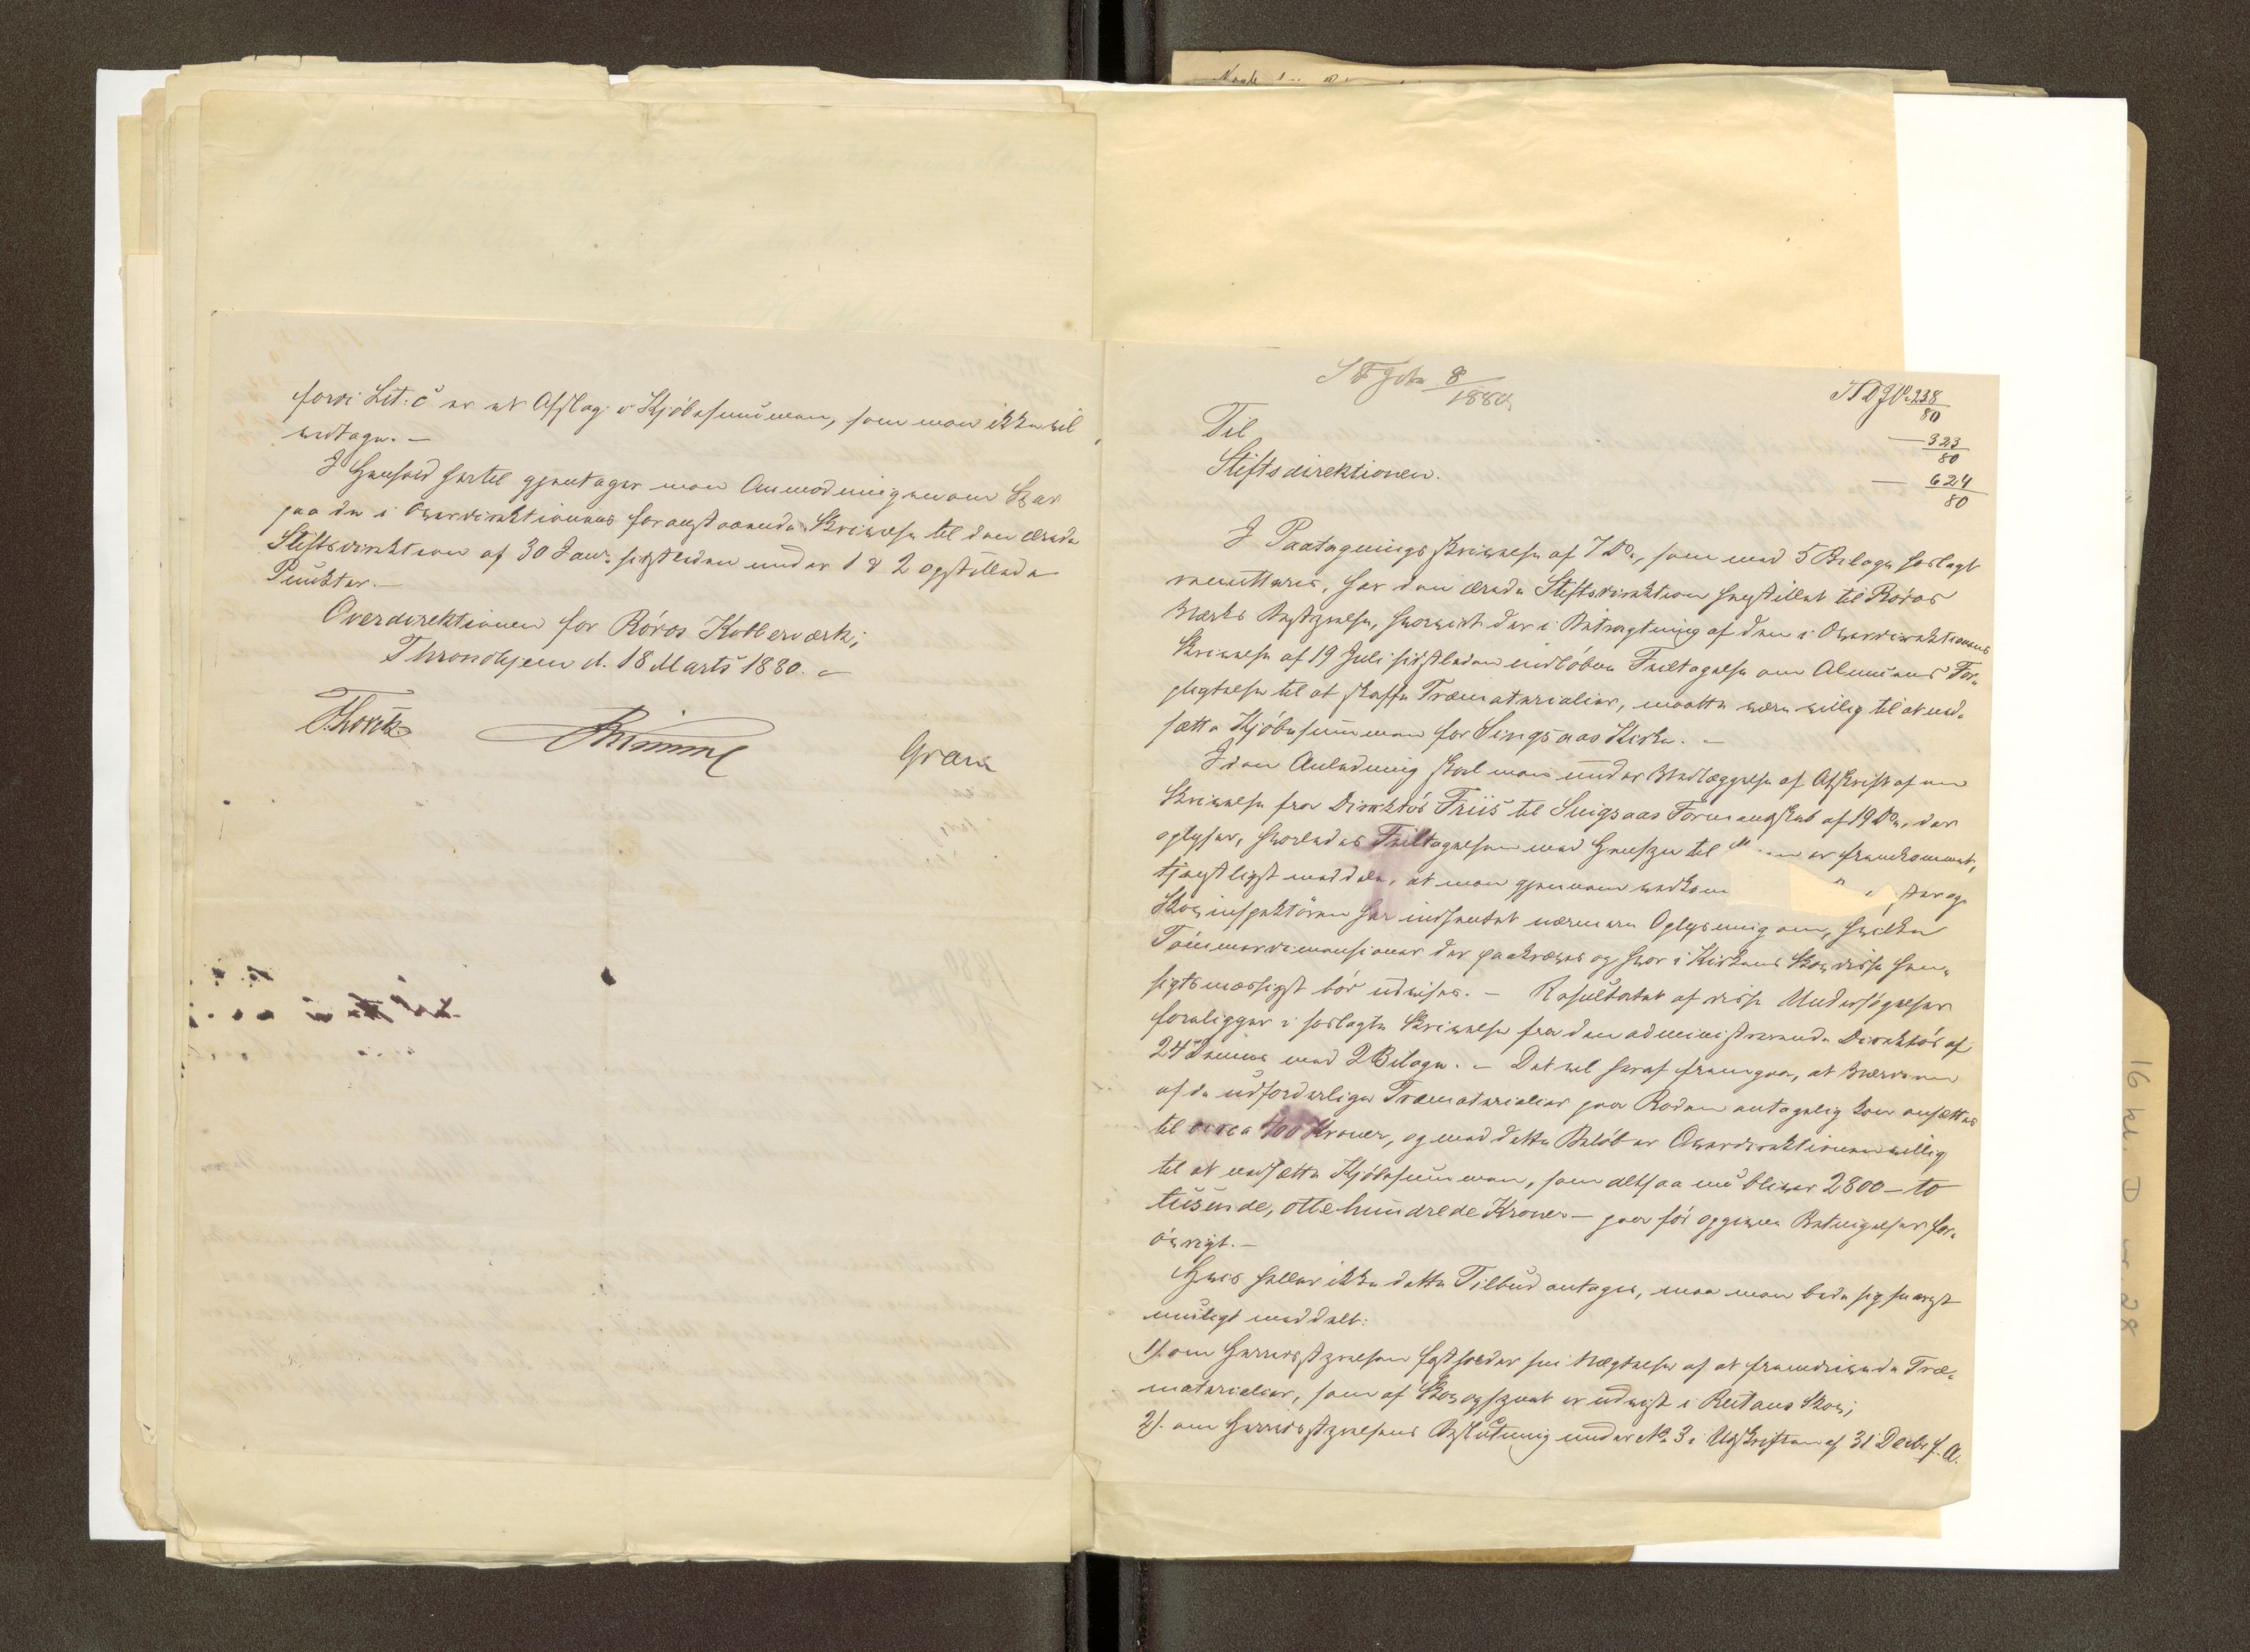 fordi Lit: c er et Afslag i Kjöbesummen, som man ikke vil
vedtage. —
I Henhold hertil gjentager man Anmodningen om Svar
paa de i Overdirektionens foranstaaende Skrivelse til den ærede
Stiftsdirektion af 30 Janr. sidstleden under 1 & 2 opstillede
Punkter. —
Overdirektionen for Röros Kobberværk;
Throndhjem d. 18 Marts 1880.
F. Horck Gram
8
1880
238
80
— 323
80
— 624
80
Til
Stiftsdirektionen.
I Paategningsskrivelse af 7 Ds., som med 5 Bilage hoslagt
remitteres, har den ærede Stiftsdirektion henstillet til Röros
Værks Bestyrelse, hvorvidt der i Betragtning af den i Overdirektionens
Skrivelse af 19 Juli sidstleden indløbne Feiltagelse om Almuens For-
pligtelse til at skaffe Træmaterialier, maatte være villig til at ned-
sætte Kjöbesummen for Singsaas Kirke. —
I den Anledning skal man under Vedlæggelse af Afskrift af en
Skrivelse fra Direktör Friis til Singsaas Formandskab af 19 Ds., der
oplyser, hvorledes Feiltagelsen med Hensyn til er fremkommet,
tjenstligst meddele, at man gjennem vedkom
Skovinspektören har indhentet nærmere Oplysning om, hvilke
Tömmerdimensioner der paakræves og hvor i Kirkens Skov disse hen-
sigtsmæssigst bör udvises. — Resultatet af disse Undersögelser
foreligger i hoslagte Skrivelse fra den administrerende Direktör af
24 dennes med 2 Bilage. — Det vil heraf fremgaa, at Værdien
af de udfordrelige Træmaterialier paa Roden antagelig kan ansættes
til circa 400 Kroner, og med dette Belöb er Overdirektionen villig
til at nedsætte Kjöbesummen, som altsaa nu bliver 2800 — to
tusinde, otte hundrede Kroner — paa för opgivne Betingelser for-
övrigt. —
Hvis heller ikke dette Tilbud antages, maa man bede sig snarest
muligt meddelt:
1). om Herredsstyrelsen fastholder sin Vægtelse af at fremdrive de Træ-
materialier, som af Skovopsynet er udvist i Reitans Skov;
2). om Herredsstyrelsens Beslutning under No. 3 i Udskriften af 31 Decbr f. A.
16 kl. D
28